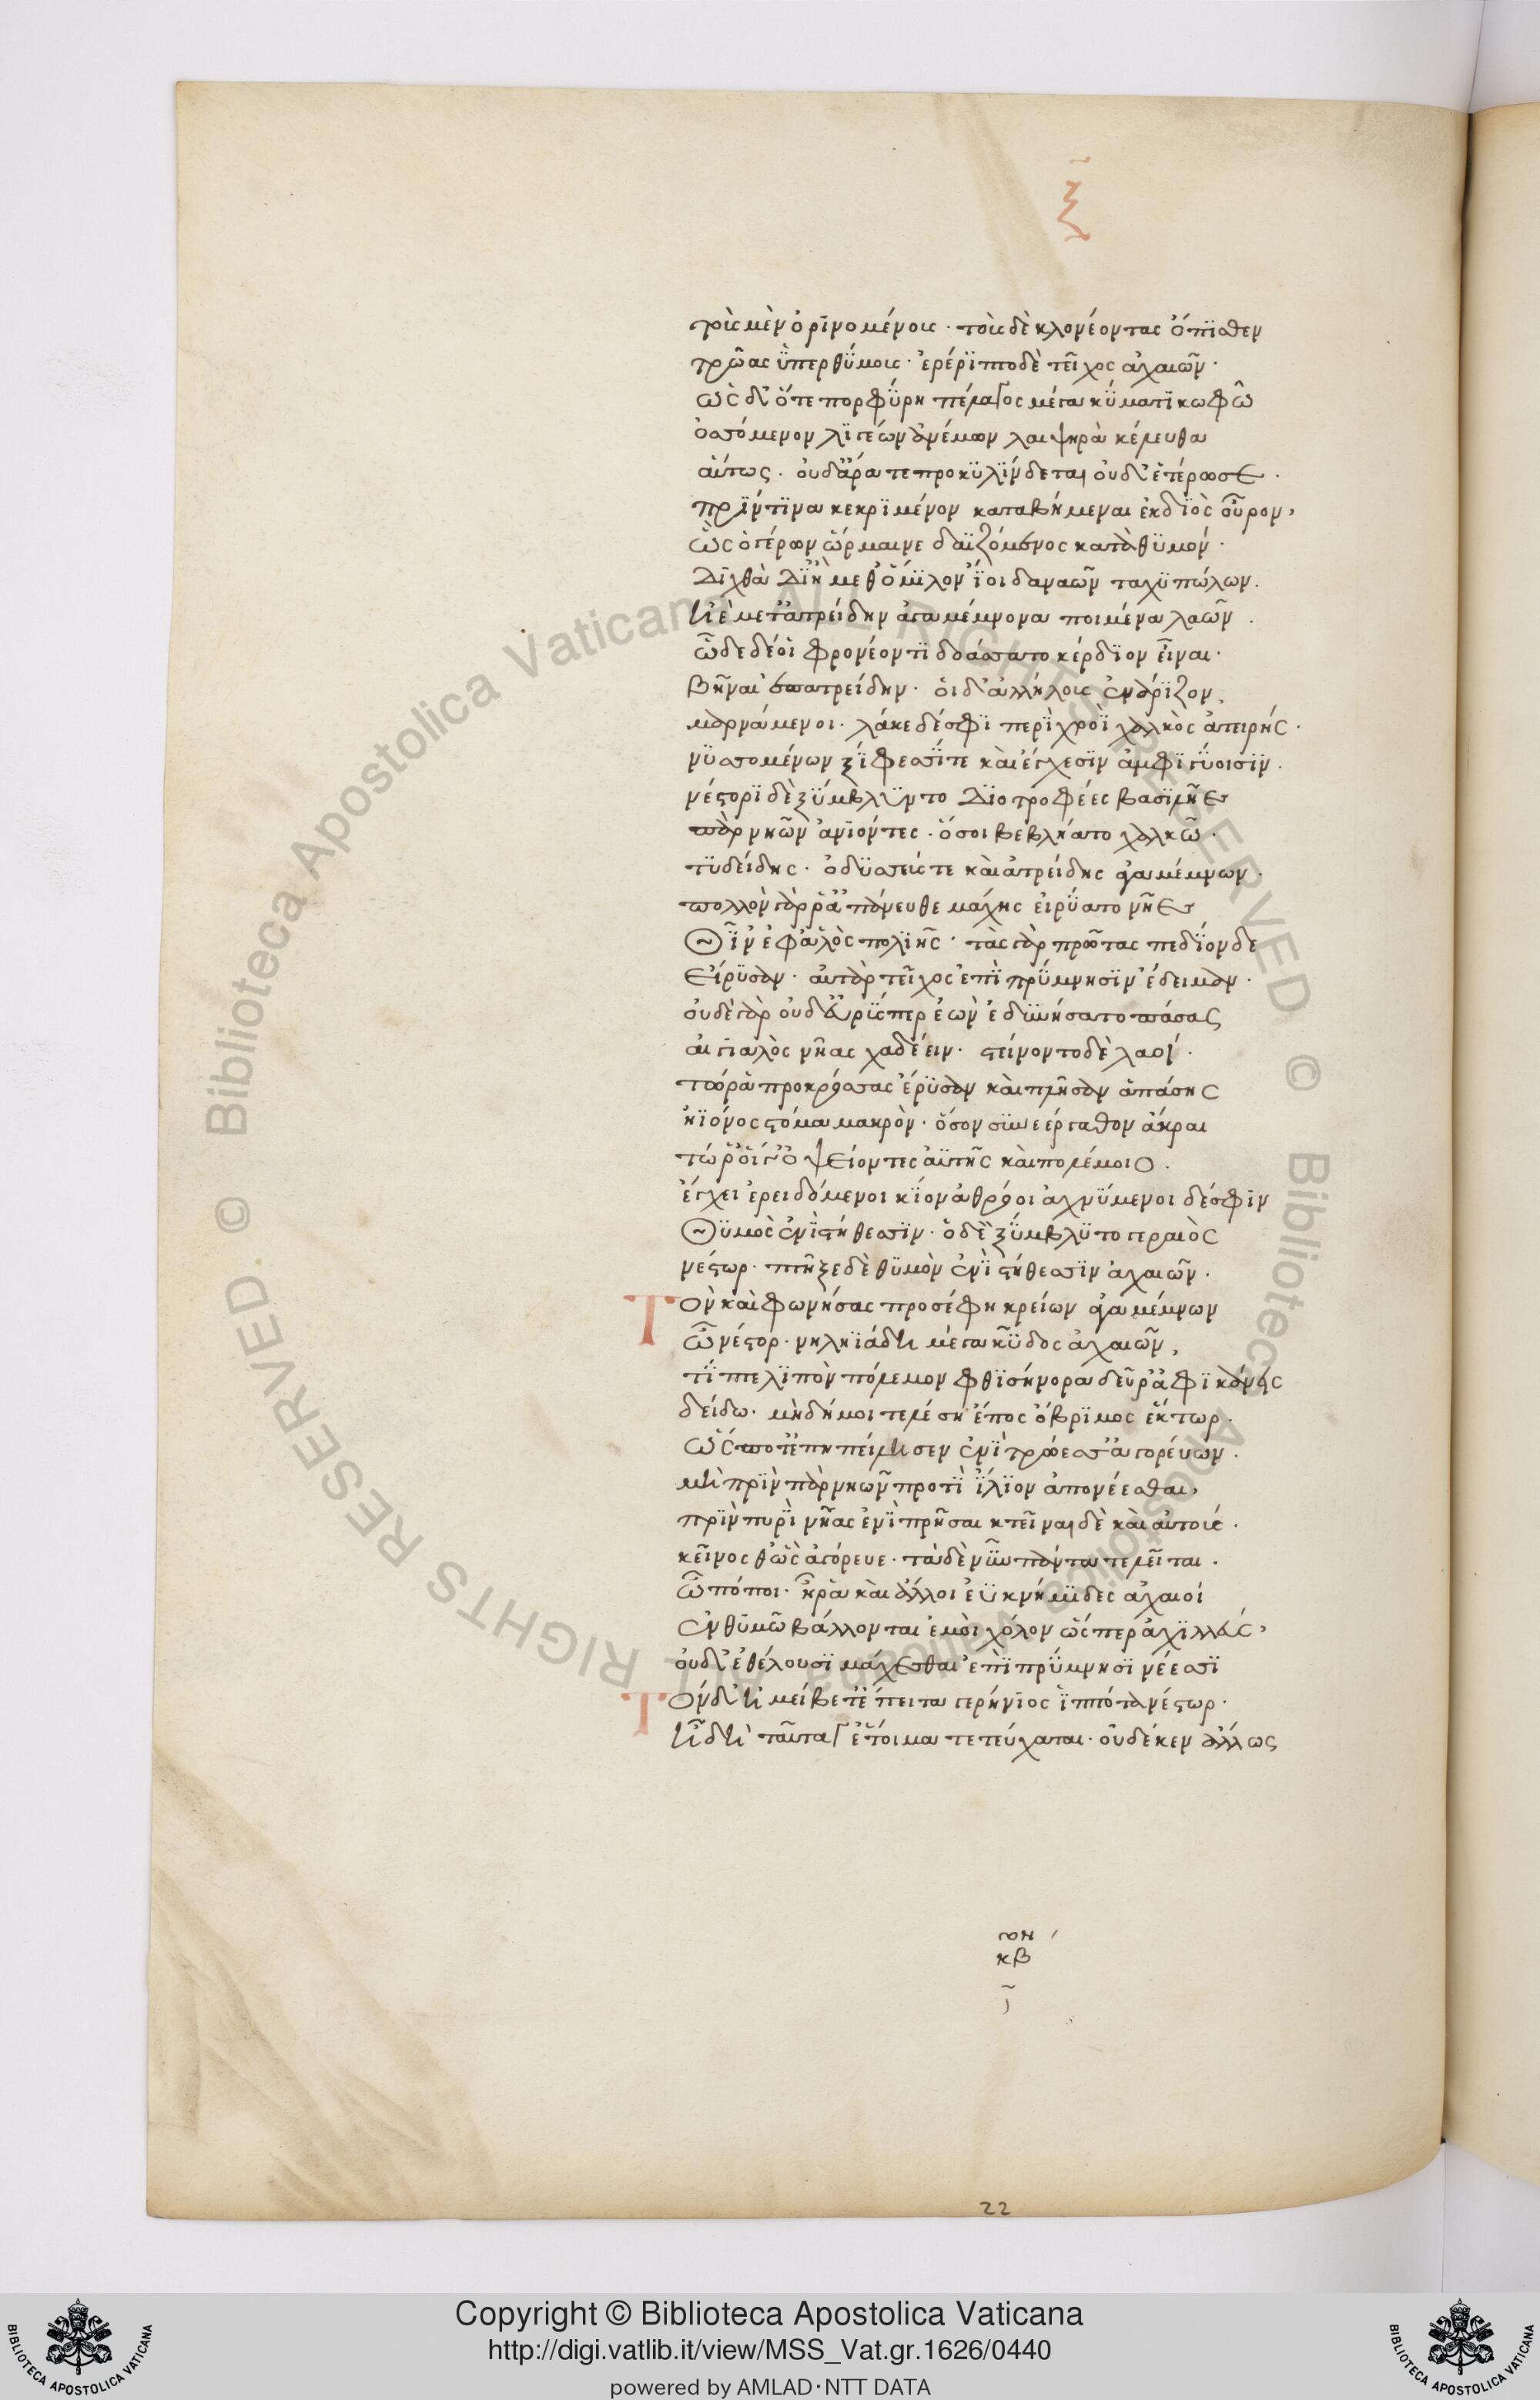 ξ
τοὺς μὲν ὀρινομένους · τοὺς δὲ κλονέοντας ὄπισθεν
τρῶας ὑπερθύμους · ἐρέριπτο δὲ τεῖχος ἀχαιῶν ·
ὡς δ' ὅτε πορφύρῃ πέλαγος μέγα κύματι κωφῶ
ὀσσόμενον λιγέων ἀνέμων λαιψηρὰ κέλευθα
αὔτως · οὐδ' ἄρα τε προκυλίνδεται οὐδ' ἑτέρωσε ·
πρίν τινα κεκριμένον καταβήμεναι ἐκ διὸς οὖρον,
ὣς ὁ γέρων ὥρμαινε δαϊζόμενος κατὰ θυμὸν ·
διχθάδι' ἢ μεθ' ὅμιλον ἴοι δαναῶν ταχυπώλων ·
ἠὲ μετ' ἀτρείδην ἀγαμέμνονα ποιμένα λαῶν ·
ὧδε δέ οἱ φρονέοντι δοάσσατο κέρδιον εἶναι ·
βῆναι ἐπ' ἀτρείδην · οἱ δ' ἀλλήλους ἐνάριζον,
μαρνάμενοι · λάκε δέ σφι περὶ χροῒ χαλκὸς ἀτειρής ·
νυσσομένων ξίφεσίν τε καὶ ἔγχεσιν ἀμφιγύοισιν ·
νέστορι δὲ ξύμβληντο διοτρεφέες βασιλῆες
πὰρ νηῶν ἀνιόντες · ὅσοι βεβλήατο χαλκῶ ·
τυδείδης · ὀδυσσεύς τε καὶ ἀτρείδης ἀγαμέμνων ·
πολλὸν γάρ ῥ' ἀπάνευθε μάχης εἰρύατο νῆες
θῖν' ἐφ' ἁλὸς πολιῆς · τὰς γὰρ πρώτας πεδίονδε
εἴρυσαν · αὐτὰρ τεῖχος ἐπὶ πρύμνησιν ἔδειμαν ·
οὐδὲ γὰρ οὐδ' εὐρύς περ ἐὼν ἐδυνήσατο πάσας
αἰγιαλὸς νῆας χαδέειν · στείνοντο δὲ λαοί ·
τώ ῥα προκρόσσας ἔρυσαν καὶ πλῆσαν ἁπάσης
ἠϊόνος στόμα μακρὸν · ὅσον συνεέργαθον ἄκραι
τώ ῥ' οἵ γ' ὀψείοντες ἀϋτῆς καὶ πολέμοιο ·
ἔγχει ἐρειδόμενοι κίον ἀθρόοι ἄχνυτο δέ σφιν
θυμὸς ἐνὶ στήθεσσιν · ὁ δὲ ξύμβλητο γεραιὸς
νέστωρ · πτῆξε δὲ θυμὸν ἐνὶ στήθεσσιν ἀχαιῶν ·
Τὸν καὶ φωνήσας προσέφη κρείων ἀγαμέμνων
ὦ νέστορ · νηληϊάδη μέγα κῦδος ἀχαιῶν,
τίπτε λιπὼν πόλεμον φθισήνορα δεῦρ' ἀφικάνεις
δείδω · μὴ δή μοι τελέσῃ ἔπος ὄβριμος ἕκτωρ ·
ὥς ποτ' ἐπηπείλησεν ἐνὶ τρώεσσ' ἀγορεύων ·
μὴ πρὶν πὰρ νηῶν προτὶ ἴλιον ἀπονέεσθαι,
πρὶν πυρὶ νῆας ἐνιπρῆσαι κτεῖναι δὲ καὶ αὐτούς ·
κεῖνος θ' ὣς ἀγόρευε · τὰ δὲ νῦν πάντα τελεῖται ·
ὦ πόποι · ἦ ῥα καὶ ἄλλοι ἐϋκνήμιδες ἀχαιοί
ἐν θυμῶ βάλλονται ἐμοὶ χόλον ὥς περ ἀχιλλεύς,
οὐδ' ἐθέλουσι μάχεσθαι ἐπὶ πρύμνῃσι νέεσσι
Τὸν δ' ἠμείβετ' ἔπειτα γερήνιος ἱππότα νέστωρ ·
ἦ δὴ ταῦτά γ' ἑτοῖμα τετεύχαται · οὐδέ κεν ἄλλως
κβ
22
Copyright © Biblioteca Apostolica Vaticana
http://digi.vatlib.it/view/MSS_Vat.gr.1626/0440
powered by AMLAD·NTT DATA
BIBLIOTECA APOSTOLICA VATICANA
BIBLIOTECA APOSTOLICA VATICANA
© Biblioteca Apostolica Vaticana ALL RIGHTS RESERVED © Biblioteca Apostolica Vaticana ALL RIGHTS RESERVED.